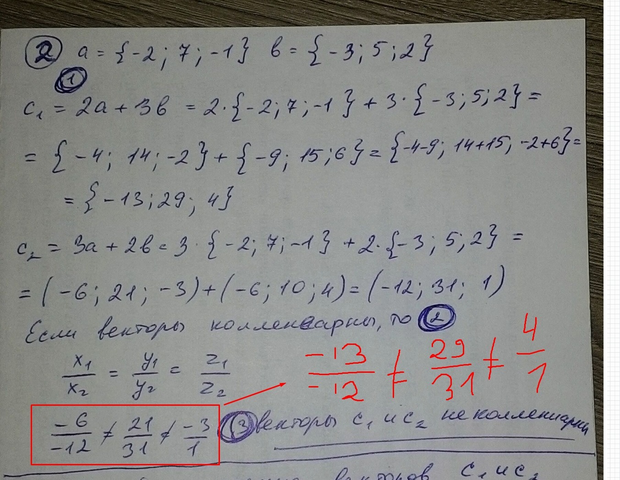 ② a = {-2; 7; -1} b = {-3; 5; 2}
①
c₁ = 2a + 3b = 2·{-2; 7; -1} + 3·{-3; 5; 2} =
= {-4; 14; -2} + {-9; 15; 6} = {-4-9; 14+15; -2+6} =
= {-13; 29; 4}
c₂ = 3a + 2b = 3·{-2; 7; -1} + 2·{-3; 5; 2} =
= (-6; 21; -3) + (-6; 10; 4) = (-12; 31; 1)
Если векторы коллениарны, то ②
x₁/x₂ = y₁/y₂ = z₁/z₂
-13/-12 ≠ 29/31 ≠ 4/1
-6/-12 ≠ 21/31 ≠ -3/1 ③ векторы c₁ и c₂ не коллениарны
векторов c₁ и c₂